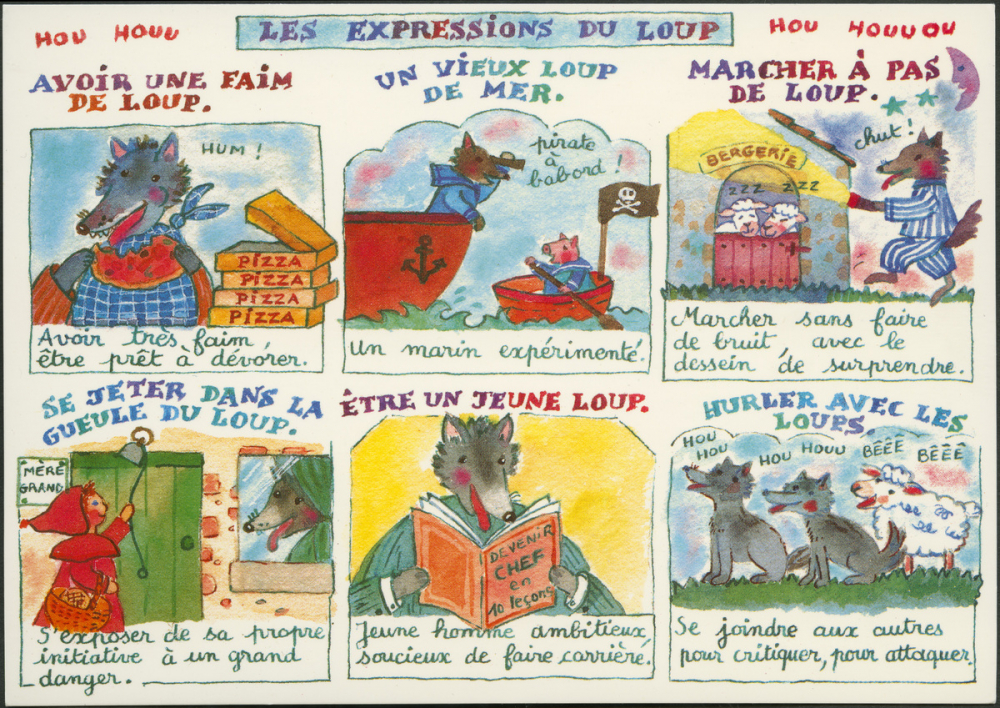 HOU HOUU
LES EXPRESSIONS DU LOUP
HOU HOUUOU
AVOIR UNE FAIM
DE LOUP.
HUM !
PIZZA
PIZZA
PIZZA
PIZZA
Avoir très faim,
être prêt à dévorer.
UN VIEUX LOUP
DE MER.
pirate
à
babord !
Un marin expérimenté.
MARCHER À PAS
DE LOUP.
chut !
BERGERIE
ZZZ ZZZ
Marcher sans faire
de bruit, avec le
dessein de surprendre.
SE JETER DANS LA
GUEULE DU LOUP.
MÈRE
GRAND
S'exposer de sa propre
initiative à un grand
danger.
ÊTRE UN JEUNE LOUP.
DEVENIR
CHEF
en
10 leçons
Jeune homme ambitieux,
soucieux de faire carrière.
HURLER AVEC LES
LOUPS.
HOU
HOU
HOU HOUU
BÊÊÊ BÊÊÊ
Se joindre aux autres
pour critiquer, pour attaquer.